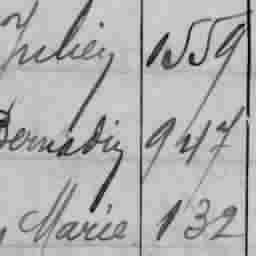 Julien 1559
Bernadin 947
Marie 132